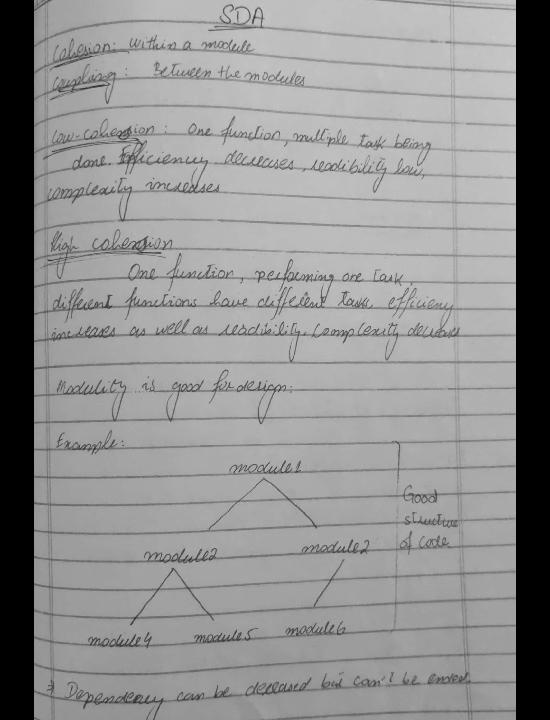 SDA
Cohesion: within a module
Coupling: Between the modules
Low-cohesion: One function, multiple task being
done. Efficiency decreases, readibility low,
complexity increases
High cohesion
One function, performing one task,
different functions have different task efficiency
increases as well as readibility. Complexity decrease
Modulity is good for design:
Example:
module1
Good
structure
of code
module2 module2
module4 module5 module6
Dependency can be decreased but can't be ended